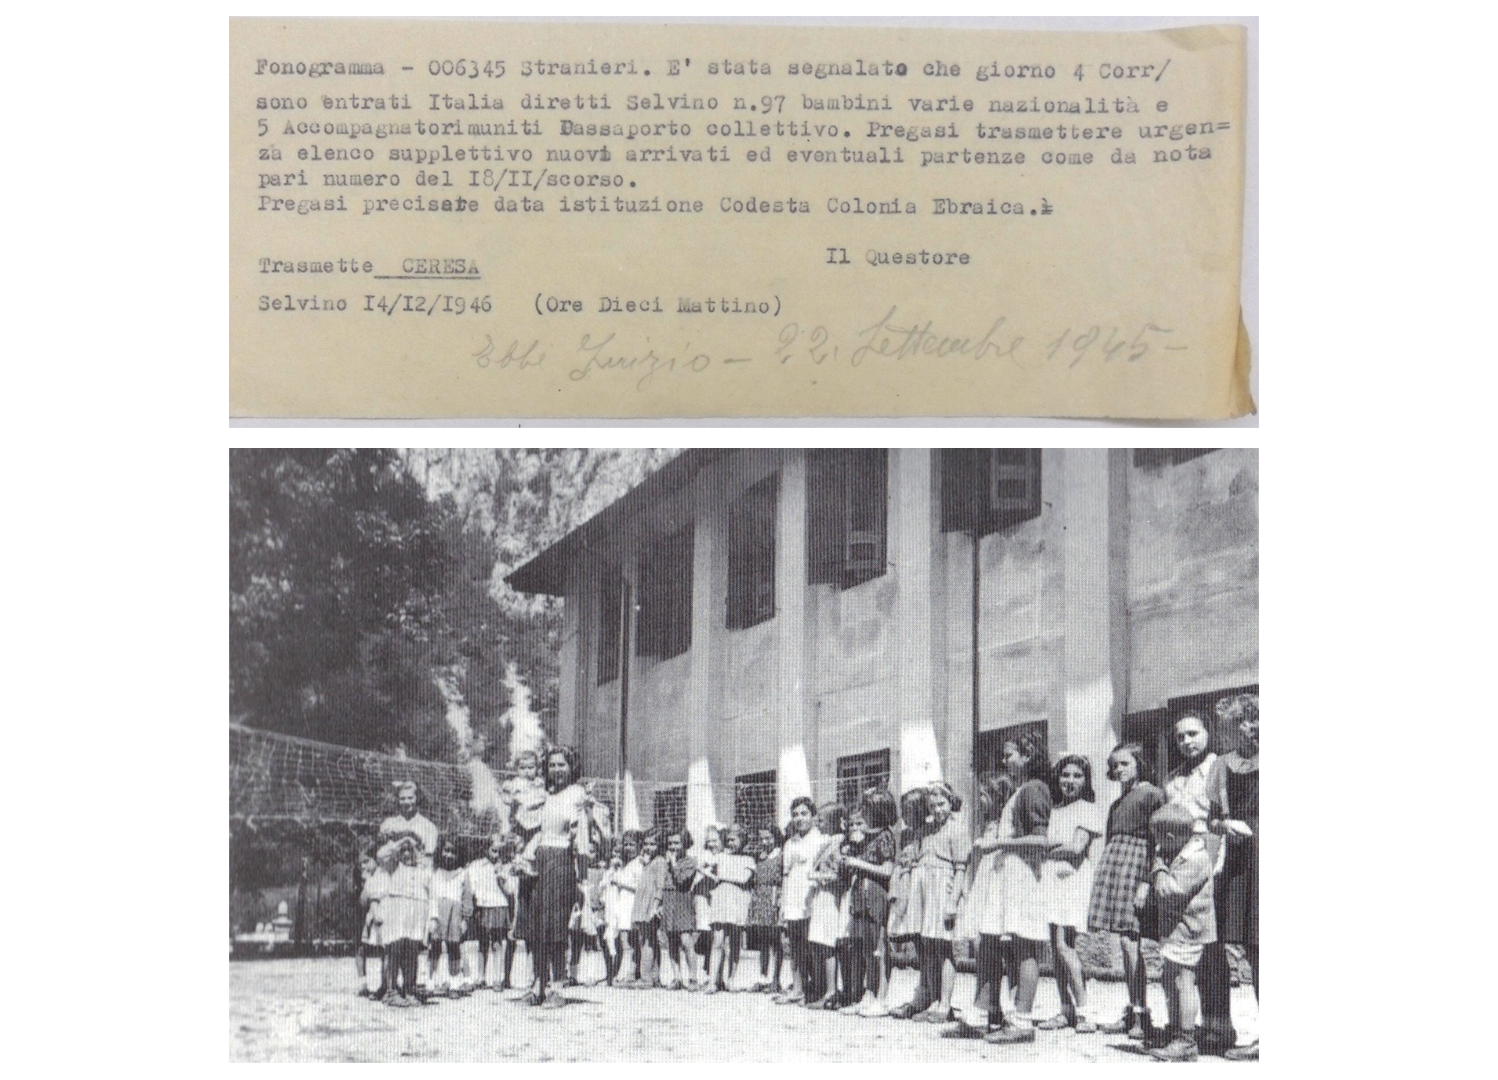 Fonogramma - 006345 Stranieri. E' stata segnalato che giorno 4 Corr/
sono entrati Italia diretti Selvino n.97 bambini varie nazionalità e
5 Accompagnatorimuniti Passaporto collettivo. Pregasi trasmettere urgen=
za elenco supplettivo nuovi arrivati ed eventuali partenze come da nota
pari numero del I8/II/scorso.
Pregasi precisate data istituzione Codesta Colonia Ebraica.
Il Questore
Trasmette CERESA
Selvino I4/I2/I946 (Ore Dieci Mattino)
Ebbe Inizio - 22. Settembre 1945-